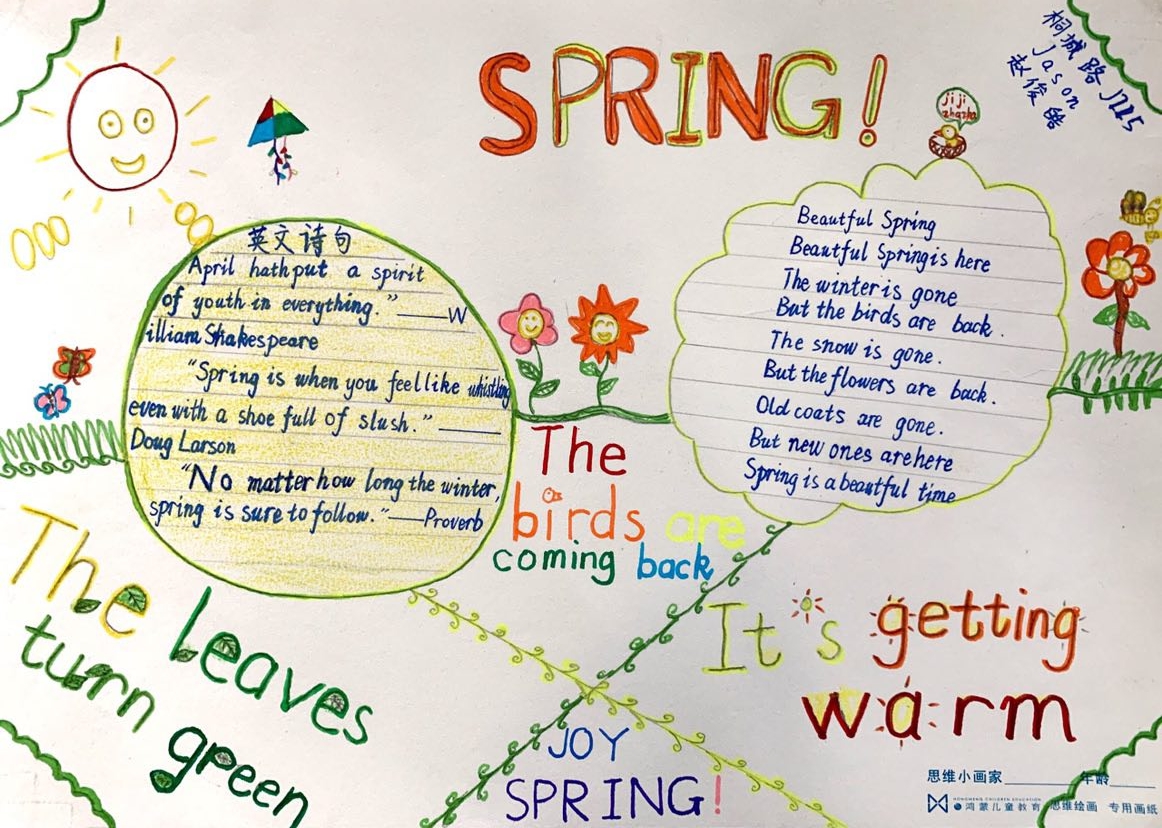 SPRING!
桐城路 J225
Jason
赵俊皓
jiji
zhazha
英文诗句
April hath put a spirit
of youth in everything." ——W
illiam Shakespeare
"Spring is when you feel like whistling
even with a shoe full of slush." ——
Doug Larson
"No matter how long the winter,
spring is sure to follow." ——Proverb
Beautful Spring
Beautful Spring is here
The winter is gone
But the birds are back.
The snow is gone.
But the flowers are back.
Old coats are gone.
But new ones are here
Spring is a beautful time
The
birds are
coming back
The leaves
turn green
It's getting
warm
JOY
SPRING!
思维小画家 年龄
HONGMENG CHILDREN EDUCATION
鸿蒙儿童教育 思维绘画 专用画纸